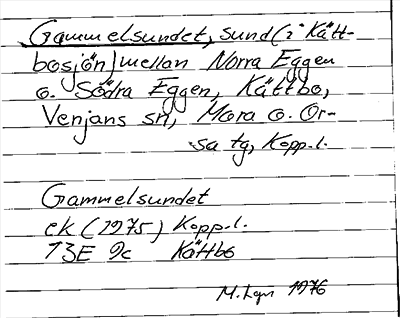 Gammelsundet, sund (i Kätt-
bosjön) mellan Norra Eggen
o. Södra Eggen, Kättbo,
Venjans sn, Mora o. Or-
sa tg, Kopp.l.
Gammelsundet
ek (1975) Kopp.l.
13E 9c Kättbo
M. Lgn 1976